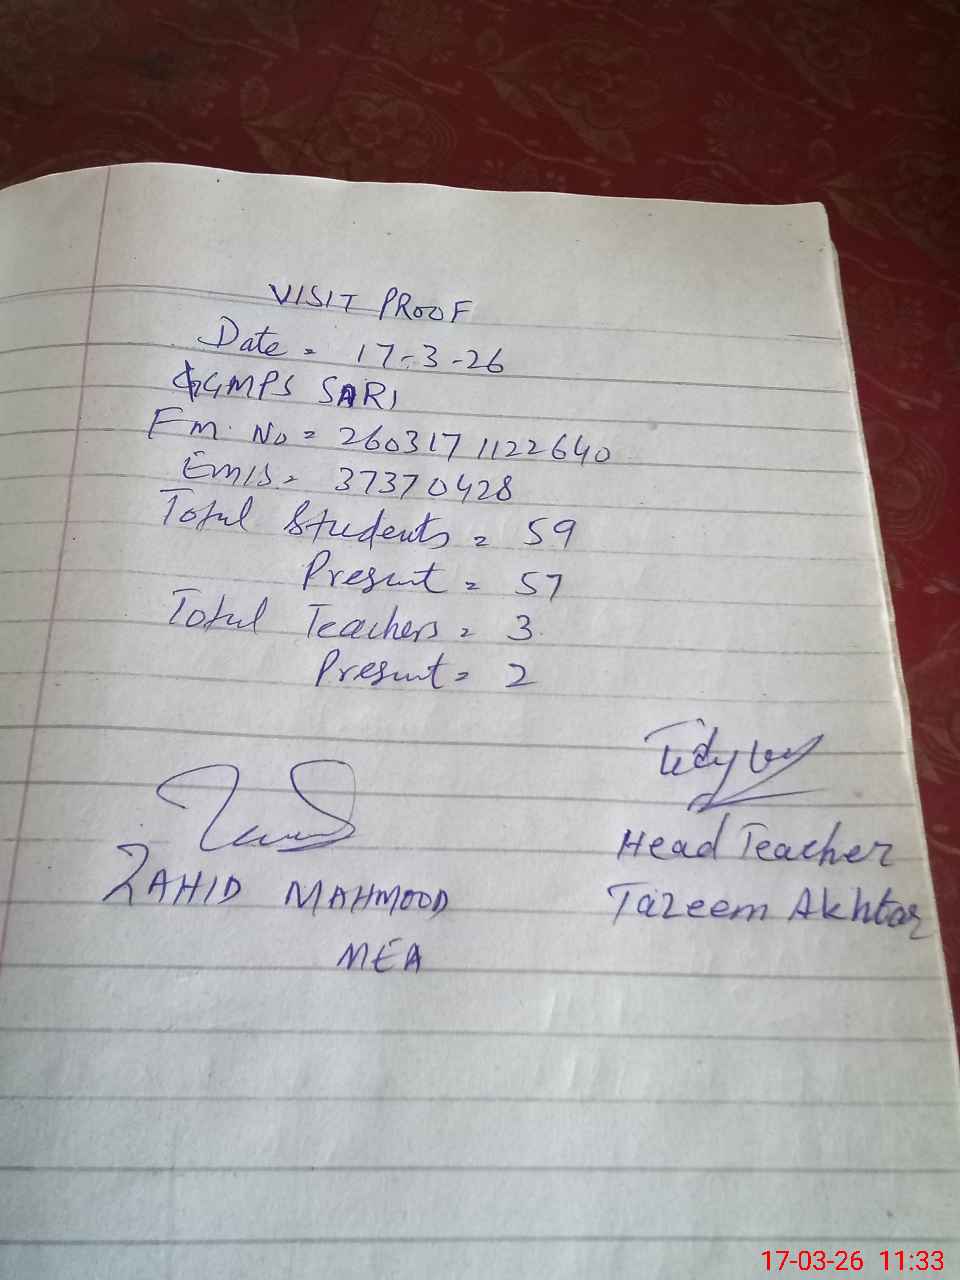 VISIT PROOF
Date = 17-3-26
GGMPS SARI
Fm. No = 2603171122640
Emis = 37370428
Total Students = 59
Present = 57
Total Teachers = 3
Present = 2
Head Teacher
ZAHID MAHMOOD
Tazeem Akhtar
MEA
17-03-26 11:33